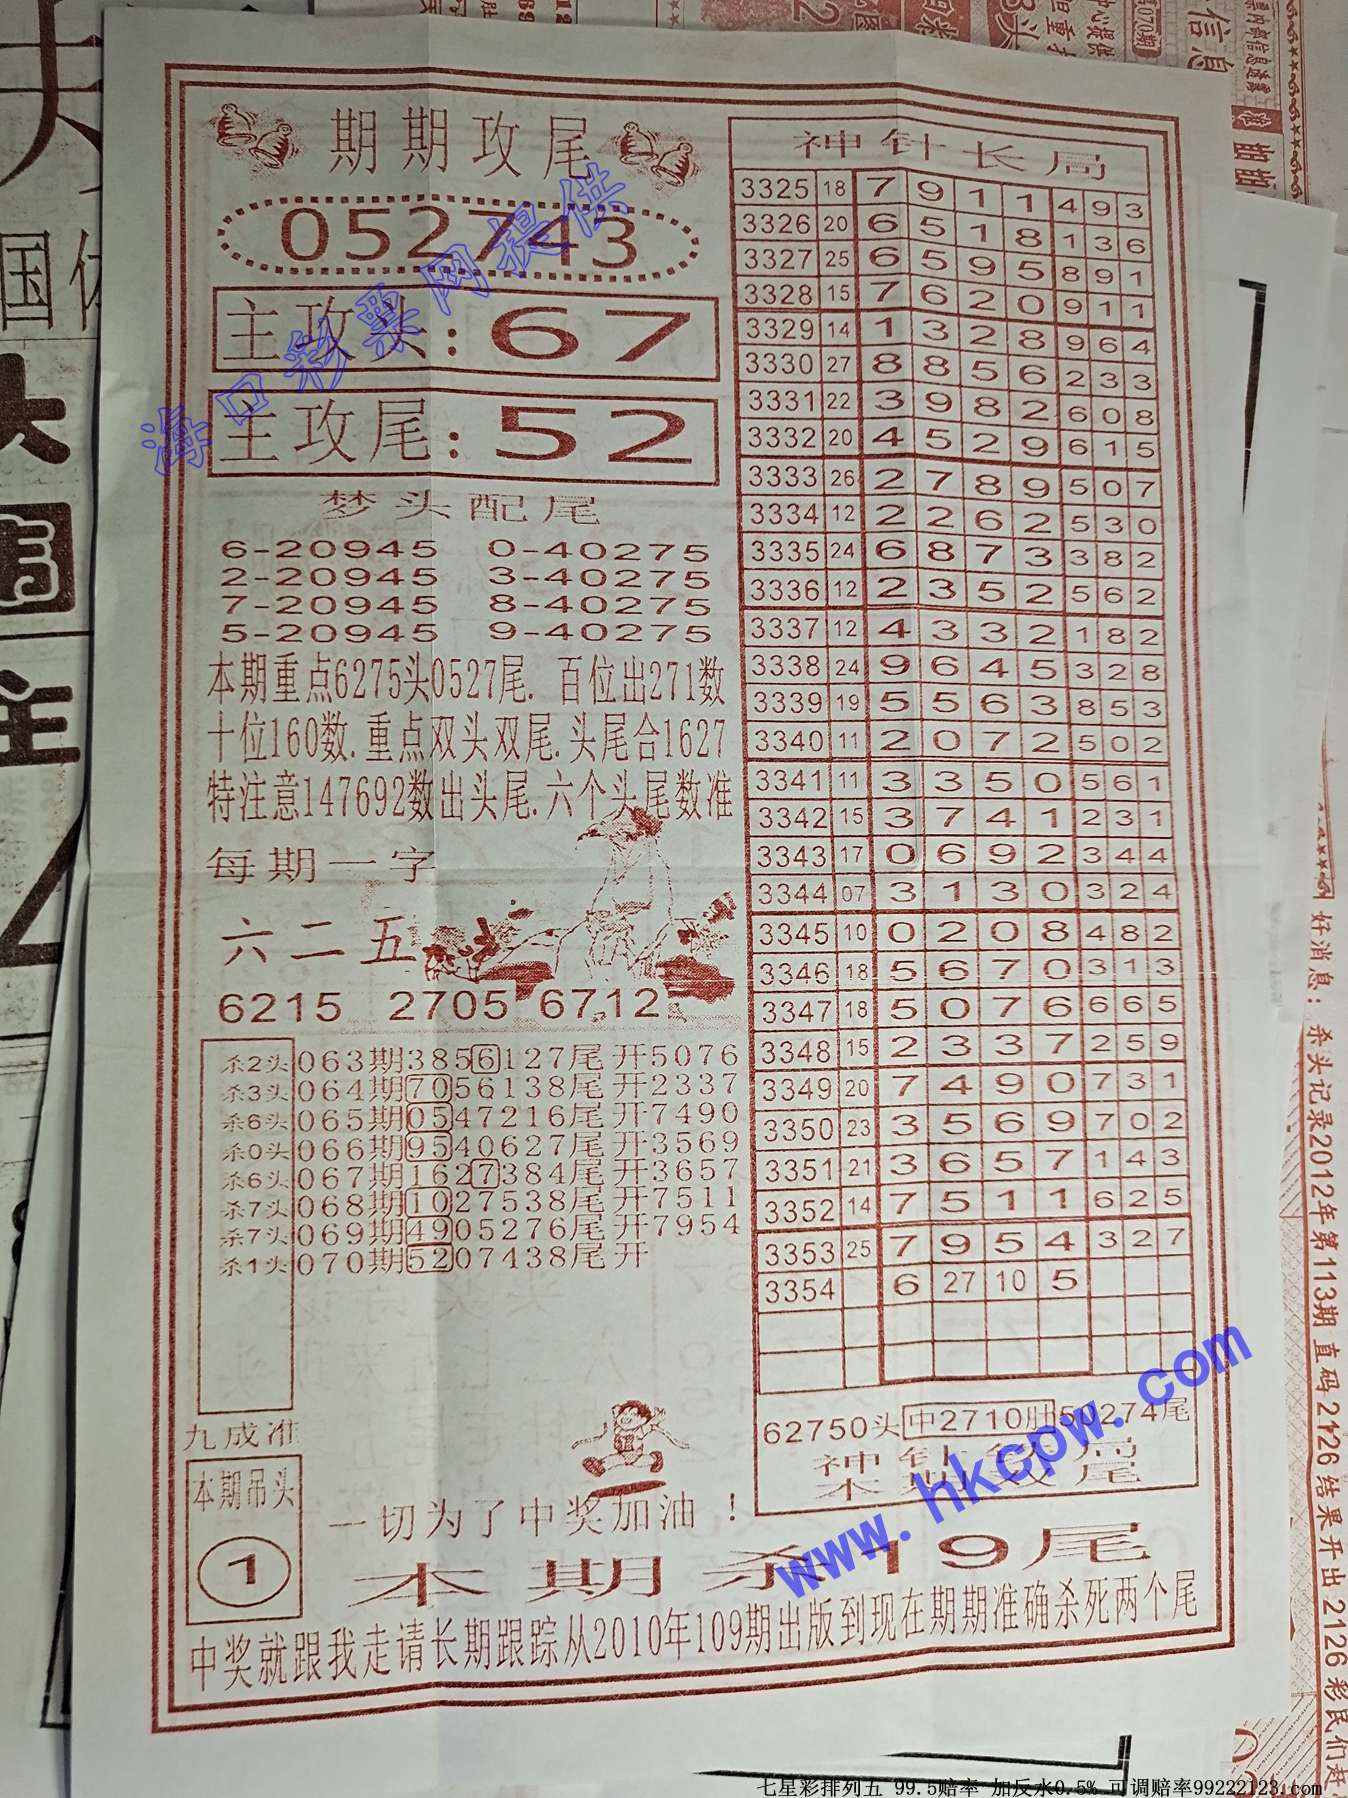 期期攻尾
052743
主攻头:67
主攻尾:52
梦头配尾
6-20945 0-40275
2-20945 3-40275
7-20945 8-40275
5-20945 9-40275
本期重点6275头0527尾. 百位出271数
十位160数.重点双头双尾.头尾合1627
特注意147692数出头尾.六个头尾数准
每期一字
六二五
6215 2705 6712
杀2头 063期3856127尾 开5076
杀3头 064期7056138尾 开2337
杀6头 065期0547216尾 开7490
杀0头 066期9540627尾 开3569
杀6头 067期1627384尾 开3657
杀7头 068期1027538尾 开7511
杀7头 069期4905276尾 开7954
杀1头 070期5207438尾 开
九成准
本期吊头
1
一切为了中奖加油!
神针长局
3325 18 7 9 1 1 4 9 3
3326 20 6 5 1 8 1 3 6
3327 25 6 5 9 5 8 9 1
3328 15 7 6 2 0 9 1 1
3329 14 1 3 2 8 9 6 4
3330 27 8 8 5 6 2 3 3
3331 22 3 9 8 2 6 0 8
3332 20 4 5 2 9 6 1 5
3333 26 2 7 8 9 5 0 7
3334 12 2 2 6 2 5 3 0
3335 24 6 8 7 3 3 8 2
3336 12 2 3 5 2 5 6 2
3337 12 4 3 3 2 1 8 2
3338 24 9 6 4 5 3 2 8
3339 19 5 5 6 3 8 5 3
3340 11 2 0 7 2 5 0 2
3341 11 3 3 5 0 5 6 1
3342 15 3 7 4 1 2 3 1
3343 17 0 6 9 2 3 4 4
3344 07 3 1 3 0 3 2 4
3345 10 0 2 0 8 4 8 2
3346 18 5 6 7 0 3 1 3
3347 18 5 0 7 6 6 6 5
3348 15 2 3 3 7 2 5 9
3349 20 7 4 9 0 7 3 1
3350 23 3 5 6 9 7 0 2
3351 21 3 6 5 7 1 4 3
3352 14 7 5 1 1 6 2 5
3353 25 7 9 5 4 3 2 7
3354 6 27 10 5
62750头 中2710肚 50274尾
本期杀19尾
中奖就跟我走请长期跟踪从2010年109期出版到现在期期准确杀死两个尾
海口彩票网提供
www.hkcpw.com
好消息:杀头记录2012年第113期直码2126结果开出2126彩民们赶
七星彩排列五 99.5赔率 加反水0.5% 可调赔率99222123.com